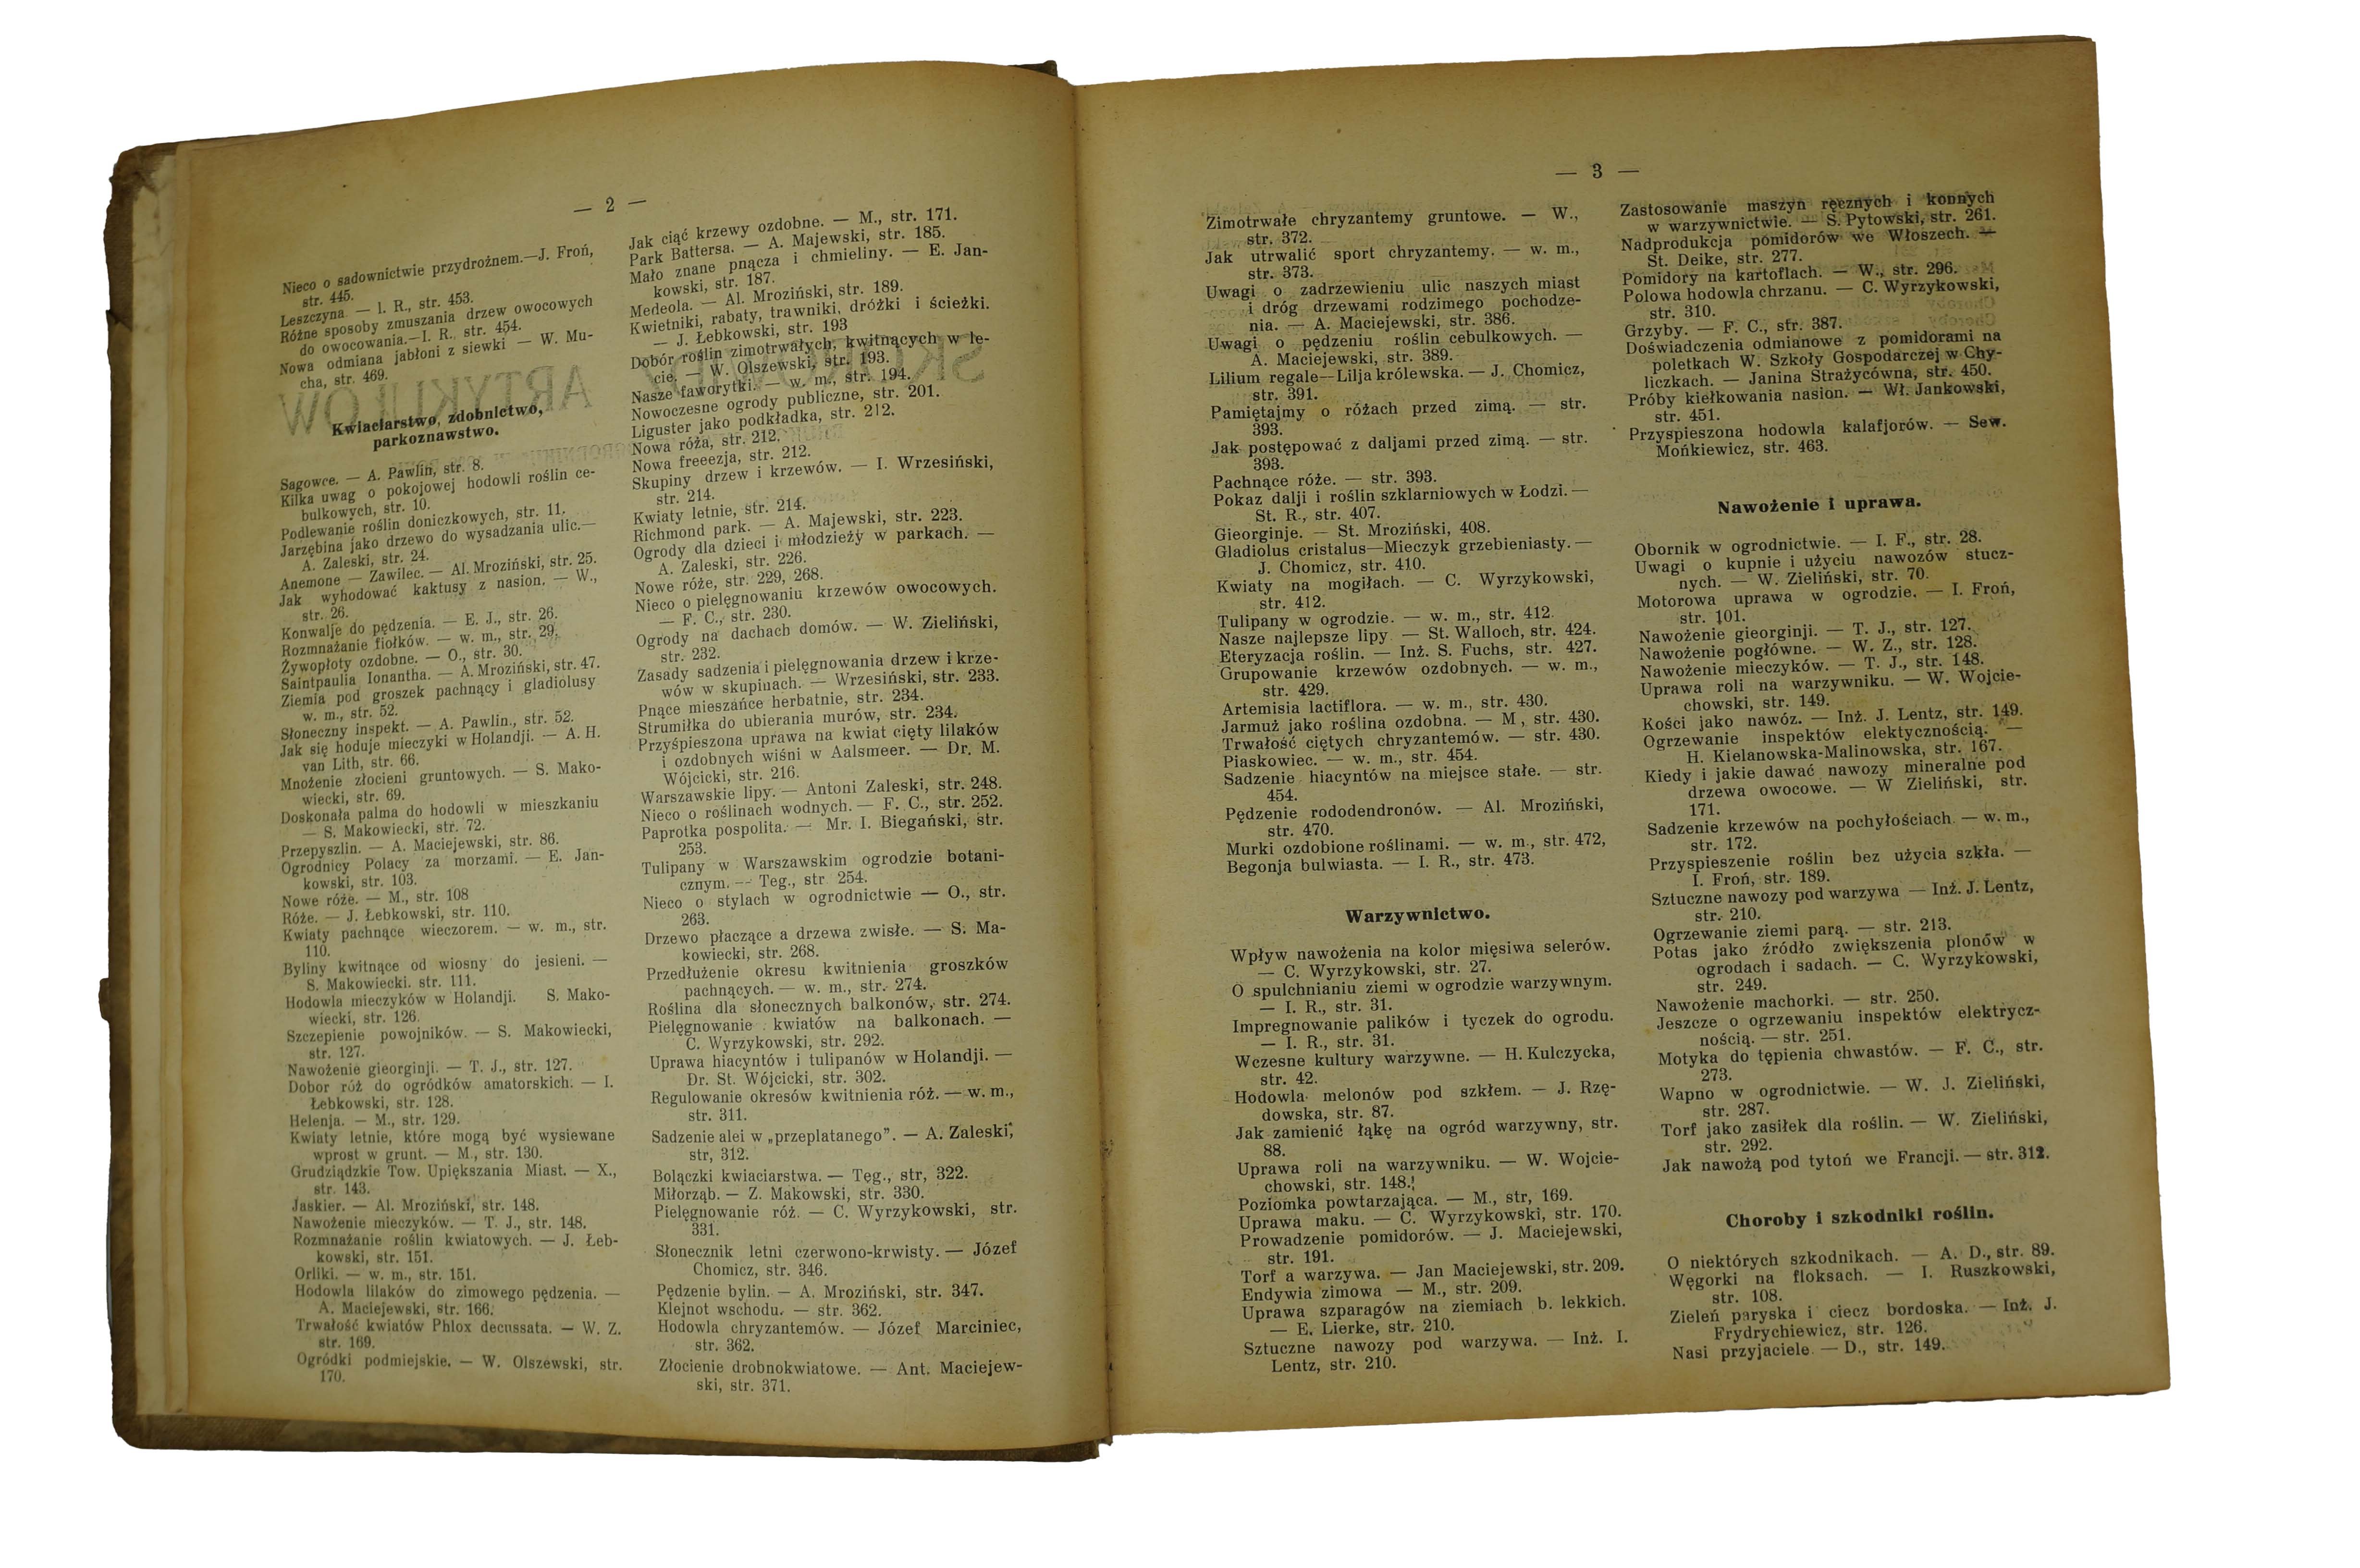 — 2 —
Nieco o sadownictwie przydrożnem.—J. Froń,
str. 445.
Leszczyna — I. R., str. 453.
Różne sposoby zmuszania drzew owocowych
do owocowania.—I. R. str. 454.
Nowa odmiana jabłoni z siewki — W. Mu-
cha, str. 469.
Kwiaciarstwo, zdobnictwo,
parkoznawstwo.
Sagowce. — A. Pawlin, str. 8.
Kilka uwag o pokojowej hodowli roślin ce-
bulkowych, str. 10.
Podlewanie roślin doniczkowych, str. 11.
Jarzębina jako drzewo do wysadzania ulic.—
A. Zaleski, str. 24.
Anemone — Zawilec. — Al. Mroziński, str. 25.
Jak wyhodować kaktusy z nasion. — W.,
str. 26.
Konwalje do pędzenia. — E. J., str. 26.
Rozmnażanie fiołków. — w. m., str. 29.
Żywopłoty ozdobne. — O., str. 30.
Saintpaulia Ionantha. — A. Mroziński, str. 47.
Ziemia pod groszek pachnący i gladiolusy
w. m., str. 52.
Słoneczny inspekt. — A. Pawlin., str. 52.
Jak się hoduje mieczyki w Holandji. — A. H.
van Lith, str. 66.
Mnożenie złocieni gruntowych. — S. Mako-
wiecki, str. 69.
Doskonała palma do hodowli w mieszkaniu
— S. Makowiecki, str. 72.
Przepyszlin. — A. Maciejewski, str. 86.
Ogrodnicy Polacy za morzami. — E. Jan-
kowski, str. 103.
Nowe róże. — M., str. 108
Róże. — J. Łebkowski, str. 110.
Kwiaty pachnące wieczorem. — w. m., str.
110.
Byliny kwitnące od wiosny do jesieni. —
S. Makowiecki. str. 111.
Hodowla mieczyków w Holandji. S. Mako-
wiecki, str. 126.
Szczepienie powojników. — S. Makowiecki,
str. 127.
Nawożenie gieorginji. — T. J., str. 127.
Dobor róż do ogródków amatorskich. — I.
Łebkowski, str. 128.
Helenja. — M., str. 129.
Kwiaty letnie, które mogą być wysiewane
wprost w grunt. — M., str. 130.
Grudziądzkie Tow. Upiększania Miast. — X.,
str. 143.
Jaskier. — Al. Mroziński, str. 148.
Nawożenie mieczyków. — T. J., str. 148.
Rozmnażanie roślin kwiatowych. — J. Łeb-
kowski, str. 151.
Orliki. — w. m., str. 151.
Hodowla lilaków do zimowego pędzenia. —
A. Maciejewski, str. 166.
Trwałość kwiatów Phlox decussata. — W. Z.
str. 169.
Ogródki podmiejskie. — W. Olszewski, str.
170.
Jak ciąć krzewy ozdobne. — M., str. 171.
Park Battersa. — A. Majewski, str. 185.
Mało znane pnącza i chmieliny. — E. Jan-
kowski, str. 187.
Medeola. — Al. Mroziński, str. 189.
Kwietniki, rabaty, trawniki, dróżki i ścieżki.
— J. Łebkowski, str. 193
Dobór roślin zimotrwałych, kwitnących w le-
cie. — W. Olszewski, str. 193.
Nasze faworytki. — w. m., str. 194.
Nowoczesne ogrody publiczne, str. 201.
Liguster jako podkładka, str. 212.
Nowa róża, str. 212.
Nowa freeezja, str. 212.
Skupiny drzew i krzewów. — I. Wrzesiński,
str. 214.
Kwiaty letnie, str. 214.
Richmond park. — A. Majewski, str. 223.
Ogrody dla dzieci i młodzieży w parkach. —
A. Zaleski, str. 226.
Nowe róże, str. 229, 268.
Nieco o pielęgnowaniu krzewów owocowych.
— F. C., str. 230.
Ogrody na dachach domów. — W. Zieliński,
str. 232.
Zasady sadzenia i pielęgnowania drzew i krze-
wów w skupinach. — Wrzesiński, str. 233.
Pnące mieszańce herbatnie, str. 234.
Strumiłka do ubierania murów, str. 234.
Przyśpieszona uprawa na kwiat cięty lilaków
i ozdobnych wiśni w Aalsmeer. — Dr. M.
Wójcicki, str. 216.
Warszawskie lipy. — Antoni Zaleski, str. 248.
Nieco o roślinach wodnych. — F. C., str. 252.
Paprotka pospolita. — Mr. I. Biegański, str.
253.
Tulipany w Warszawskim ogrodzie botani-
cznym. — Teg., str 254.
Nieco o stylach w ogrodnictwie — O., str.
263.
Drzewo płaczące a drzewa zwisłe. — S. Ma-
kowiecki, str. 268.
Przedłużenie okresu kwitnienia groszków
pachnących. — w. m., str. 274.
Roślina dla słonecznych balkonów, str. 274.
Pielęgnowanie kwiatów na balkonach. —
C. Wyrzykowski, str. 292.
Uprawa hiacyntów i tulipanów w Holandji. —
Dr. St. Wójcicki, str. 302.
Regulowanie okresów kwitnienia róż. — w. m.,
str. 311.
Sadzenie alei w „przeplatanego”. — A. Zaleski,
str, 312.
Bolączki kwiaciarstwa. — Tęg., str, 322.
Miłorząb. — Z. Makowski, str. 330.
Pielęgnowanie róż. — C. Wyrzykowski, str.
331.
Słonecznik letni czerwono-krwisty. — Józef
Chomicz, str. 346.
Pędzenie bylin. — A. Mroziński, str. 347.
Klejnot wschodu. — str. 362.
Hodowla chryzantemów. — Józef Marciniec,
str. 362.
Złocienie drobnokwiatowe. — Ant. Maciejew-
ski, str. 371.
— 3 —
Zimotrwałe chryzantemy gruntowe. — W.,
str. 372.
Jak utrwalić sport chryzantemy. — w. m.,
str. 373.
Uwagi o zadrzewieniu ulic naszych miast
i dróg drzewami rodzimego pochodze-
nia. — A. Maciejewski, str. 386.
Uwagi o pędzeniu roślin cebulkowych. —
A. Maciejewski, str. 389.
Lilium regale—Lilja królewska. — J. Chomicz,
str. 391.
Pamiętajmy o różach przed zimą. — str.
393.
Jak postępować z daljami przed zimą. — str.
393.
Pachnące róże. — str. 393.
Pokaz dalji i roślin szklarniowych w Łodzi. —
St. R., str. 407.
Gieorginje. — St. Mroziński, 408.
Gladiolus cristalus—Mieczyk grzebieniasty. —
J. Chomicz, str. 410.
Kwiaty na mogiłach. — C. Wyrzykowski,
str. 412.
Tulipany w ogrodzie. — w. m., str. 412.
Nasze najlepsze lipy — St. Walloch, str. 424.
Eteryzacja roślin. — Inż. S. Fuchs, str. 427.
Grupowanie krzewów ozdobnych. — w. m.,
str. 429.
Artemisia lactiflora. — w. m., str. 430.
Jarmuż jako roślina ozdobna. — M, str. 430.
Trwałość ciętych chryzantemów. — str. 430.
Piaskowiec. — w. m., str. 454.
Sadzenie hiacyntów na miejsce stałe. — str.
454.
Pędzenie rododendronów. — Al. Mroziński,
str. 470.
Murki ozdobione roślinami. — w. m., str. 472,
Begonja bulwiasta. — I. R., str. 473.
Warzywnictwo.
Wpływ nawożenia na kolor mięsiwa selerów.
— C. Wyrzykowski, str. 27.
O spulchnianiu ziemi w ogrodzie warzywnym.
— I. R., str. 31.
Impregnowanie palików i tyczek do ogrodu.
— I. R., str. 31.
Wczesne kultury warzywne. — H. Kulczycka,
str. 42.
Hodowla melonów pod szkłem. — J. Rzę-
dowska, str. 87.
Jak zamienić łąkę na ogród warzywny, str.
88.
Uprawa roli na warzywniku. — W. Wojcie-
chowski, str. 148.
Poziomka powtarzająca. — M., str, 169.
Uprawa maku. — C. Wyrzykowski, str. 170.
Prowadzenie pomidorów. — J. Maciejewski,
str. 191.
Torf a warzywa. — Jan Maciejewski, str. 209.
Endywia zimowa — M., str. 209.
Uprawa szparagów na ziemiach b. lekkich.
— E. Lierke, str. 210.
Sztuczne nawozy pod warzywa. — Inż. I.
Lentz, str. 210.
Zastosowanie maszyn ręcznych i konnych
w warzywnictwie. — S. Pytowski, str. 261.
Nadprodukcja pomidorów we Włoszech. —
St. Deike, str. 277.
Pomidory na kartoflach. — W., str. 296.
Polowa hodowla chrzanu. — C. Wyrzykowski,
str. 310.
Grzyby. — F. C., str. 387.
Doświadczenia odmianowe z pomidorami na
poletkach W. Szkoły Gospodarczej w Chy-
liczkach. — Janina Strażycówna, str. 450.
Próby kiełkowania nasion. — Wł. Jankowski,
str. 451.
Przyspieszona hodowla kalafjorów. — Sew.
Mońkiewicz, str. 463.
Nawożenie i uprawa.
Obornik w ogrodnictwie. — I. F., str. 28.
Uwagi o kupnie i użyciu nawozów stucz-
nych. — W. Zieliński, str. 70.
Motorowa uprawa w ogrodzie. — I. Froń,
str. 101.
Nawożenie gieorginji. — T. J., str. 127.
Nawożenie pogłówne. — W. Z., str. 128.
Nawożenie mieczyków. — T. J., str. 148.
Uprawa roli na warzywniku. — W. Wojcie-
chowski, str. 149.
Kości jako nawóz. — Inż. J. Lentz, str. 149.
Ogrzewanie inspektów elektycznością. —
H. Kielanowska-Malinowska, str. 167.
Kiedy i jakie dawać nawozy mineralne pod
drzewa owocowe. — W Zieliński, str.
171.
Sadzenie krzewów na pochyłościach. — w. m.,
str. 172.
Przyspieszenie roślin bez użycia szkła. —
I. Froń, str. 189.
Sztuczne nawozy pod warzywa — Inż. J. Lentz,
str. 210.
Ogrzewanie ziemi parą. — str. 213.
Potas jako źródło zwiększenia plonów w
ogrodach i sadach. — C. Wyrzykowski,
str. 249.
Nawożenie machorki. — str. 250.
Jeszcze o ogrzewaniu inspektów elektrycz-
nością. — str. 251.
Motyka do tępienia chwastów. — F. C., str.
273.
Wapno w ogrodnictwie. — W. J. Zieliński,
str. 287.
Torf jako zasiłek dla roślin. — W. Zieliński,
str. 292.
Jak nawożą pod tytoń we Francji. — str. 312.
Choroby i szkodniki roślin.
O niektórych szkodnikach. — A. D., str. 89.
Węgorki na floksach. — I. Ruszkowski,
str. 108.
Zieleń paryska i ciecz bordoska. — Inż. J.
Frydrychiewicz, str. 126.
Nasi przyjaciele — D., str. 149.